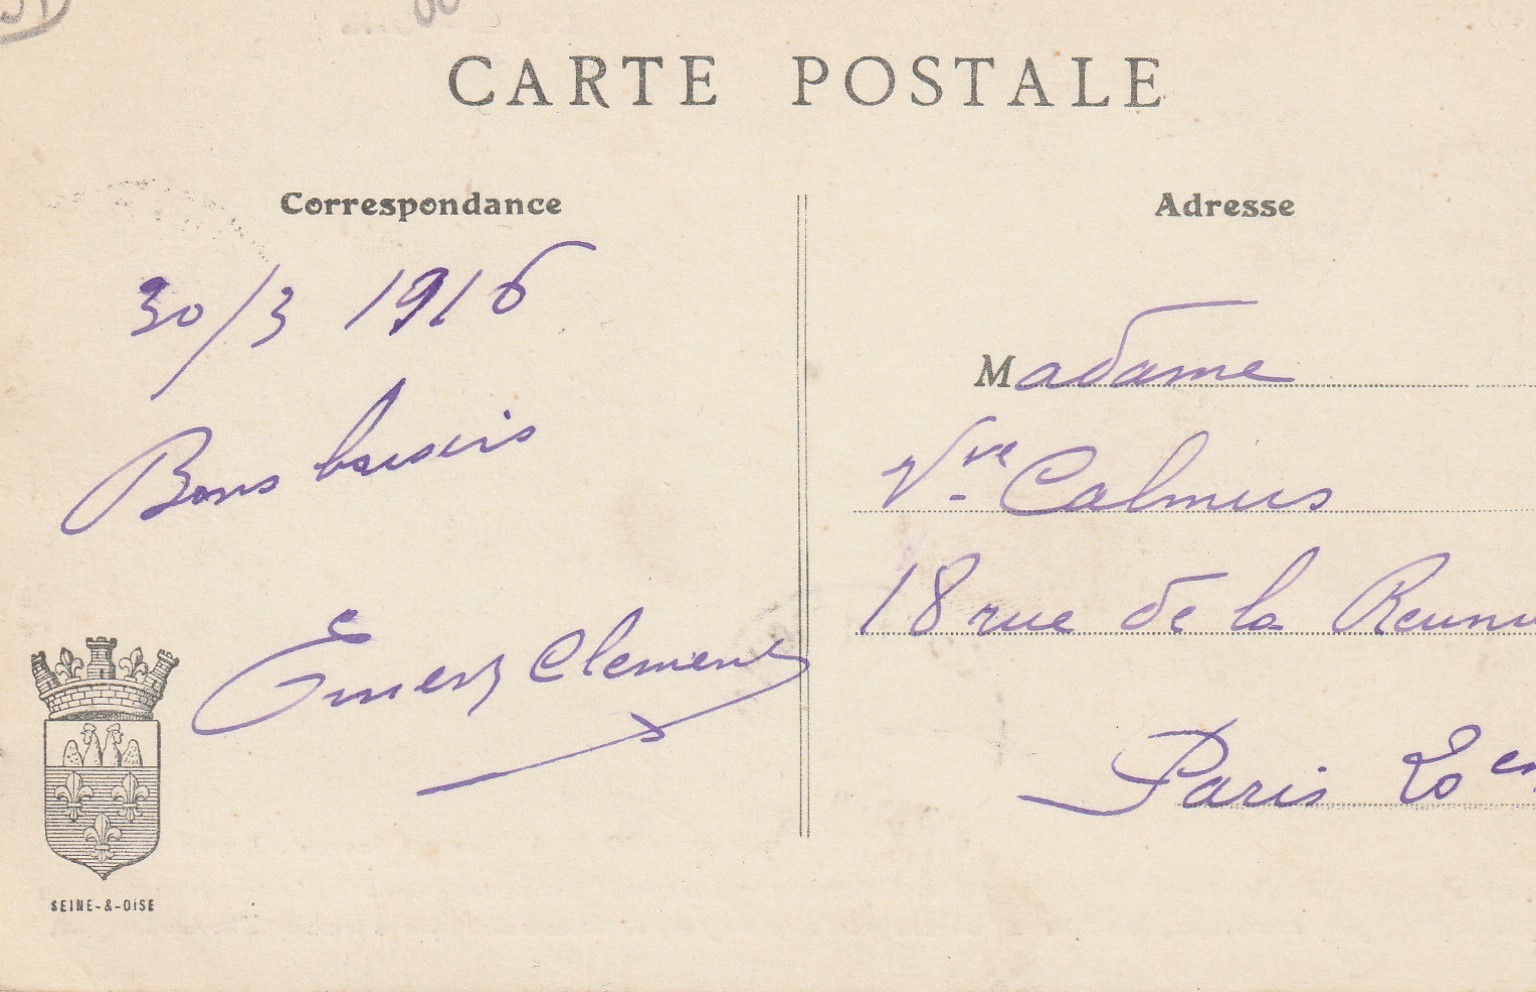 CARTE POSTALE
Correspondance
Adresse
30/3 1916
Bons baisers
Ernest Clement
Madame
Vve Calmus
18 rue de la Reunio
Paris 20e
SEINE-&-OISE